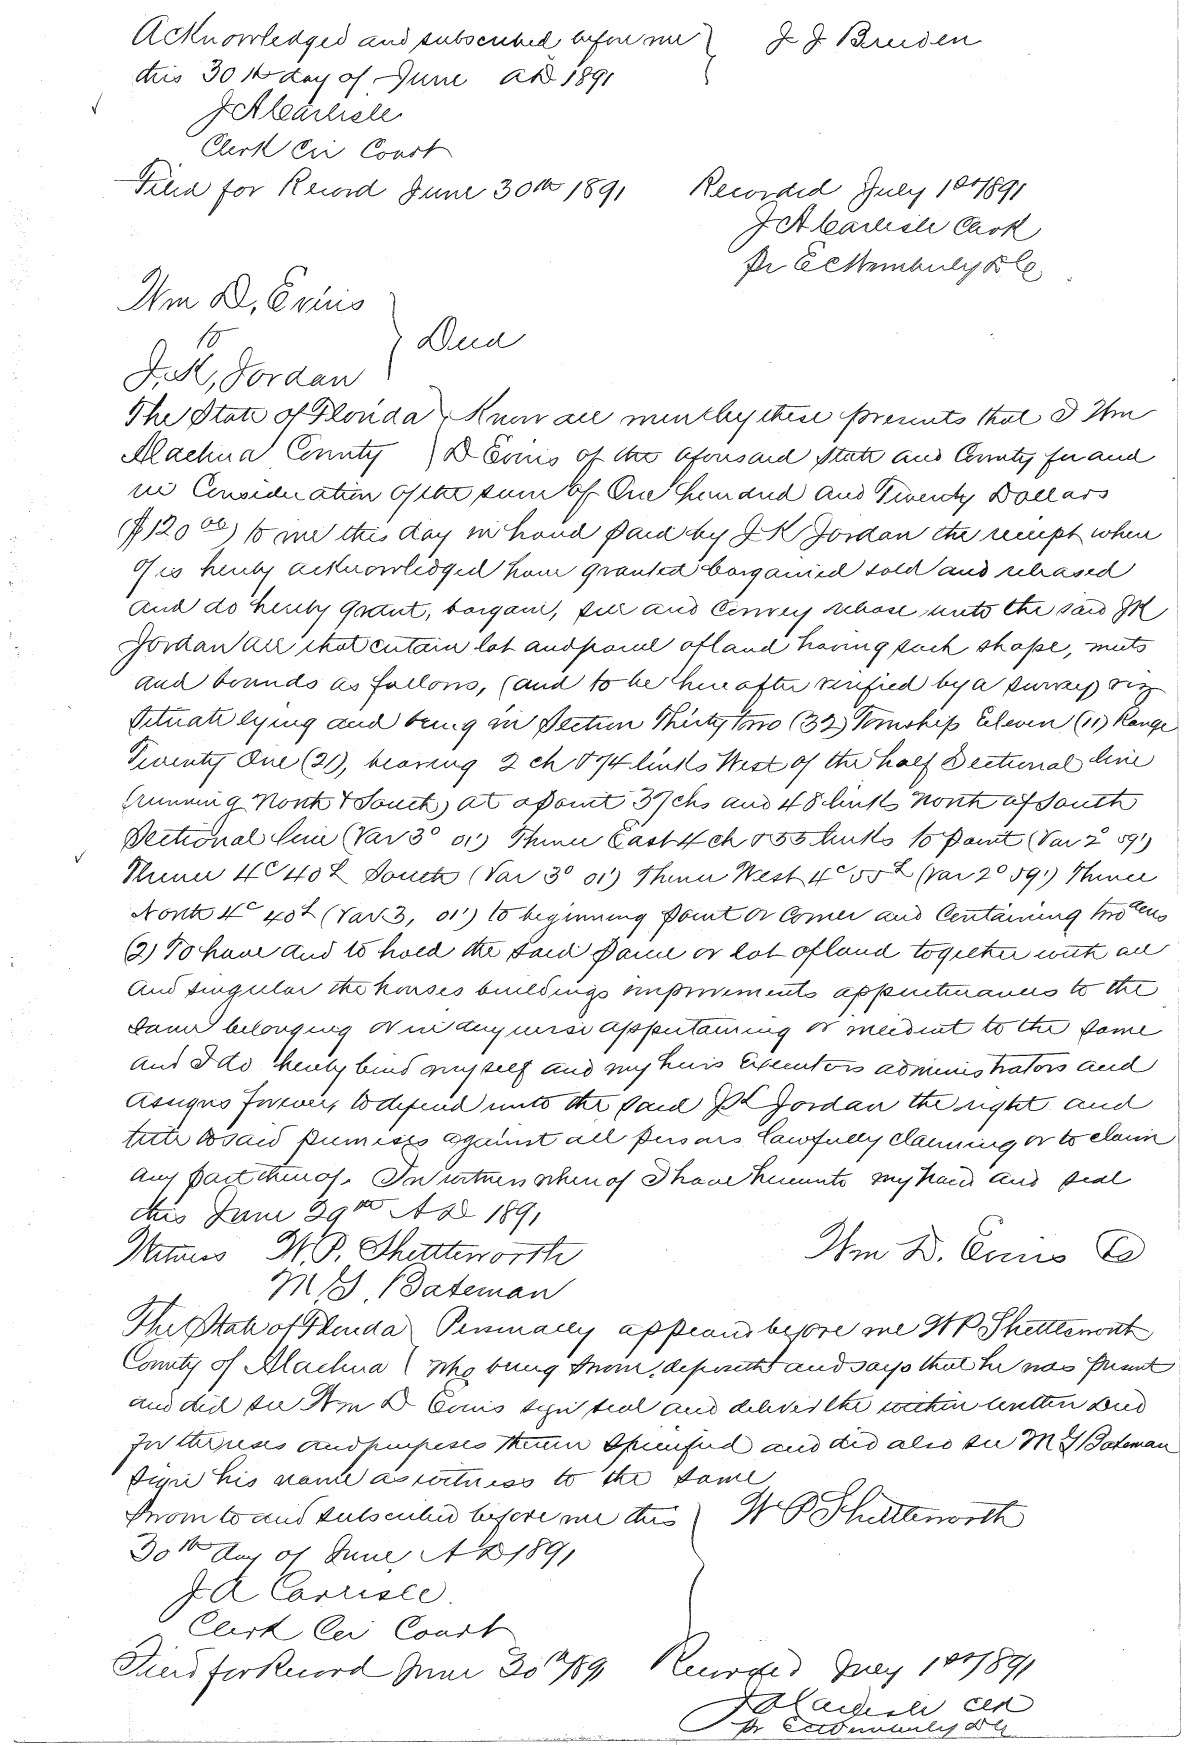 Acknowledged and subscribed before me } J J Breeden
this 30th day of June AD 1891
J A Carlisle
Clerk Cir Court
Filed for Record June 30th 1891 Recorded July 1st 1891
J A Carlisle Clerk
pr E C Wimberly D C
Wm D. Evins
to } Deed
J. K. Jordan
The State of Florida } Know all men by these presents that I Wm
Alachua County } D Evins of the aforesaid State and County for and
in Consideration of the sum of One hundred and Twenty Dollars
($120 00) to me this day in hand paid by J K Jordan the receipt where
of is hereby acknowledged have granted bargained sold and released
and do hereby grant, bargain, sell and convey release unto the said J K
Jordan all that certain lot and parcel of land having such shape, meets
and bounds as follows, (and to be hereafter verified by a survey) viz
Situate lying and being in Section Thirty two (32) Township Eleven (11) Range
Twenty One (21), bearing 2 ch & 74 links West of the half Sectional line
(running North & South) at a point 37 chs and 48 links North of South
Sectional line (Var 3° 01') Thence East 4 ch & 55 links to point (Var 2° 59')
Thence 4c 40L South (Var 3° 01') Thence West 4c 55L (Var 2° 59') Thence
North 4c 40L (Var 3, 01') to beginning point or corner and containing two acres
(2) To have and to hold the said parcel or lot of land together with all
and singular the houses buildings improvements appurtenances to the
same belonging or in anywise appertaining or incident to the same
and I do hereby bind myself and my heirs Executors administrators and
assigns forever, to defend unto the said J K Jordan the right and
title to said premises against all persons lawfully claiming or to claim
any part thereof. In witness whereof I have hereunto my hand and seal
this June 29th A D 1891
Witness W. P. Shettleworth Wm D. Evins
M. G. Bateman
The State of Florida } Personally appeared before me W P Shettleworth
County of Alachua } who being sworn, deposeth and says that he was present
and did see Wm D Evins sign seal and deliver the within written Deed
for the uses and purposes therein specified and did also see M G Bateman
sign his name as witness to the same
Sworn to and subscribed before me this } W P Shettleworth
30th day of June A D 1891
J A Carlisle
Clerk Cir Court
Filed for Record June 30th/891 Recorded July 1st 1891
J A Carlisle Clk
pr E C Wimberly D C